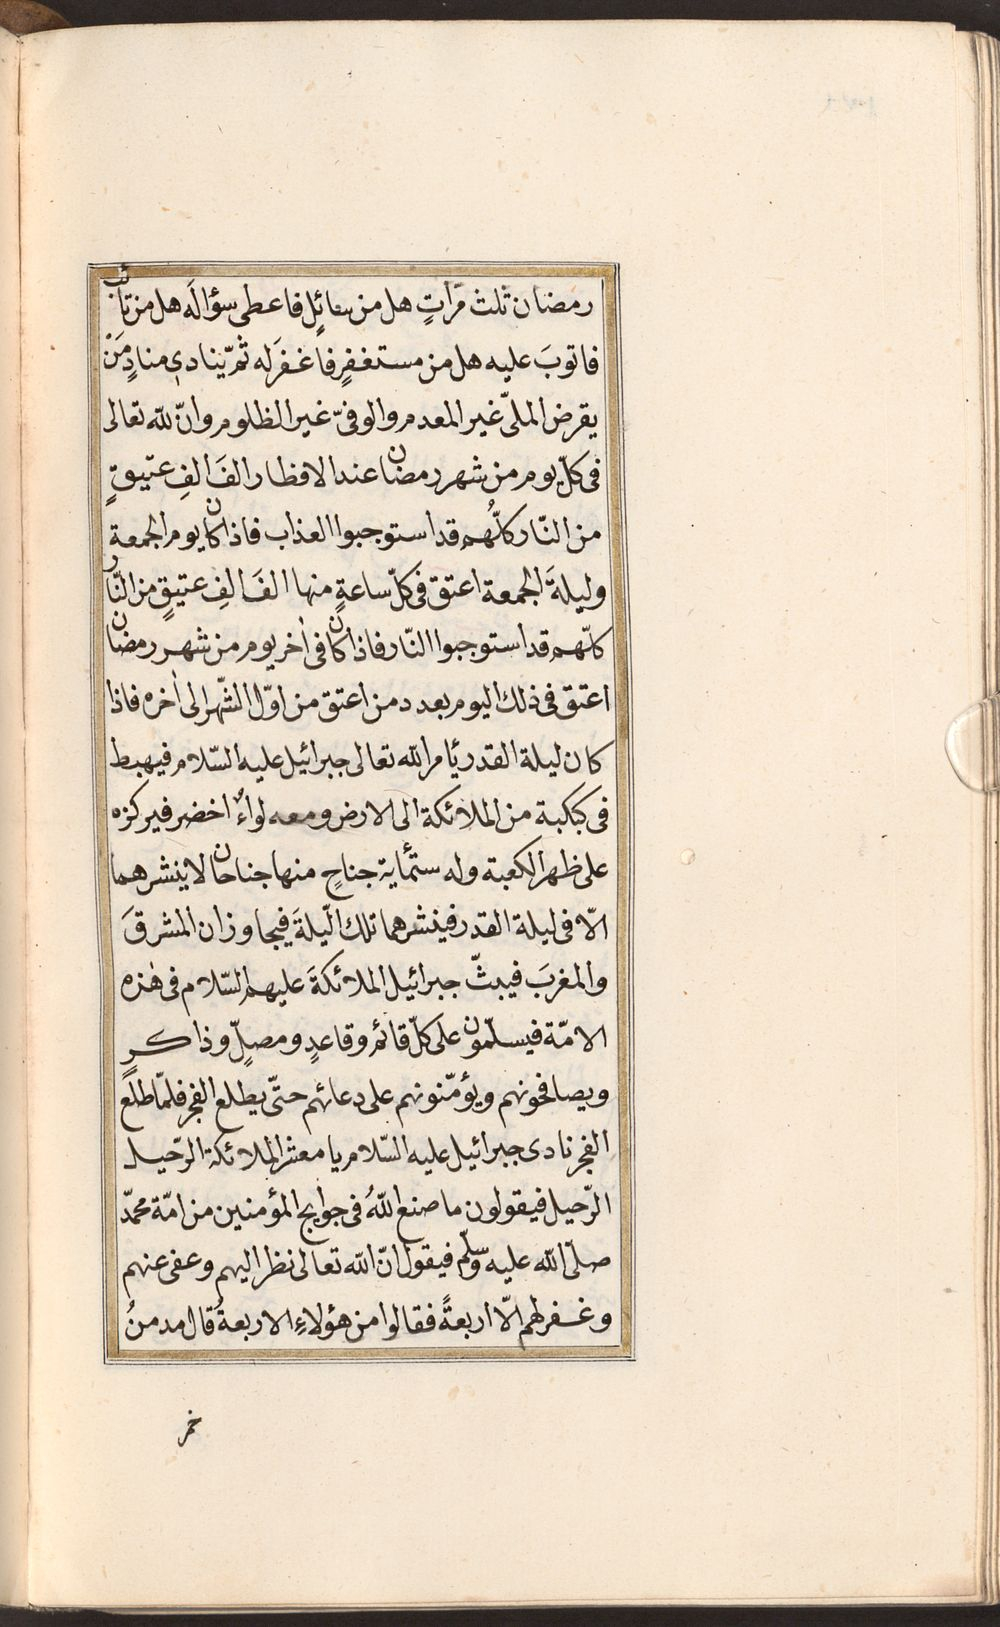 رمضان ثلث مرّاتٍ هل من سائلٍ فاعطى سؤالَه هل من تائبٍ
فاتوبَ عليه هل من مستغفرٍ فاغفرَ له ثمّ ينادى منادٍ مَنْ
يقرض الملىّ غير المعدم والوفىّ غير الظلوم وانّ لله تعالى
فى كلّ يوم من شهر رمضان عند الافطار الفَ الفِ عتيقٍ
من النّار كلُّهم قد استوجبوا العذاب فاذا كان يوم الجمعة
وليلةَ الجمعة اعتق فى كلّ ساعةٍ منها الفَ الفِ عتيقٍ من النّار
كلّهم قد استوجبوا النّار فاذا كان فى اٰخر يوم من شهر رمضان
اعتق فى ذلك اليوم بعدد من اعتق من اوّل الشّهر الى اٰخره فاذا
كان ليلة القدر يأمر الله تعالى جبرائيل عليه السّلام فيهبط
فى كبكبة من الملائكة الى الارض ومعه لواءٌ اخضر فيركزه
على ظهر الكعبة وله ستّمأية جناحٍ منها جناحان لا ينشرهما
الّا فى ليلة القدر فينشرهما تلك اللّيلةَ فيجاوزان المشرقَ
والمغربَ فيبثّ جبرائيل الملائكةَ عليهم السّلام فى هٰذه
الامّة فيسلّمون على كلّ قائم وقاعدٍ ومصلٍّ وذاكرٍ
ويصافحونهم ويؤمّنونهم على دعائهم حتّى يطلع الفجر فلمّا طلع
الفجر نادى جبرائيل عليه السّلام يا معشر الملائكة الرّحيل
الرّحيل فيقولون ما صنع اللهُ فى حوايج المؤمنين من امّة محمّد
صلّى الله عليه وسلّم فيقول انّ الله تعالى نظر اليهم وعفى عنهم
وغفر لهم الّا اربعةً فقالوا من هؤلاءِ الاربعةُ قال مدمنُ
خمر